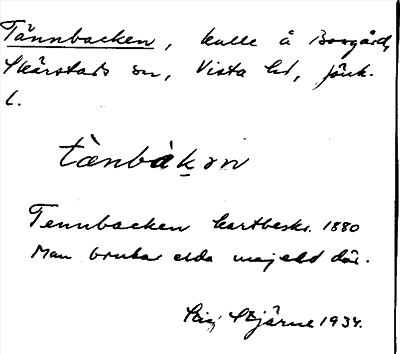 Tännbacken, kulle å Boogård,
Skärstads sn, Vista hd, Jönk.
l.
tä̀nbàkən
Tennbacken kartbeskr. 1880
Man brukar elda majeld där.
Stjärne 1934.